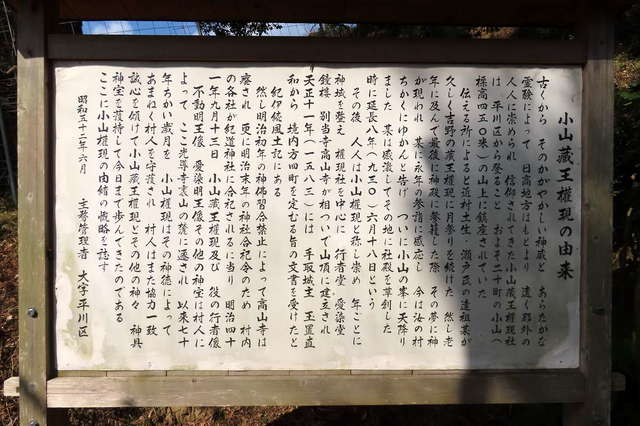 小山蔵王権現の由来
古くから　そのかがやかしい神威と　あらたかな
霊験によって　日高地方はもとより　遠く郡外の
人々に崇められ　信仰されてきた小山蔵王権現社
は　平川区から登ること　およそ二十町の小山へ
標高四五〇米）の山上に鎮座されていた
伝える所によると近村土生・瀬戸氏の遠祖某が
久しく吉野の蔵王権現に月参りを続けた　然し老
年に及んで最後に神殿に参籠した際　その夢に神
が現われ　某に永年の参詣に感応し　今は汝の村
ちかくにゆかんと告げ　ついに小山の峯に天降り
ました　某は感激してその地に社殿を草創した
時に延長八年（九三〇）六月十八日という
その後　人人は小山権現と称し崇め　年ごとに
神域を整え　権現社を中心に　行者堂　愛染堂
鐘楼　別当寺高山寺が相ついで山頂に建立され
天正十一年（一五八三）には　手取城主　玉置直
和から　境内方四町を定むる旨の文書を受けたと
紀伊続風土記にある
然し明治初年の神佛習合禁止によって高山寺は
廃され　更に明治末年の神社合祀令のため　村内
の各社が紀道神社に合祀されるに当り　明治四十
一年九月十三日　小山蔵王権現及び　役の行者像
不動明王像　愛染明王像その他の神宝は村人に
よって　ここ光尊寺裏山の麓に遷され　以来七十
年ちかい歳月を　小山権現はその神徳によって
あまねく村人を守護され　村人はまた協力一致
誠心を傾けて小山蔵王権現とその他の神々　神具
神宝を護持して今日まで歩んできたのである
ここに小山権現の由緒の概略を誌す
昭和五十二年六月　主務管理者　大字平川区